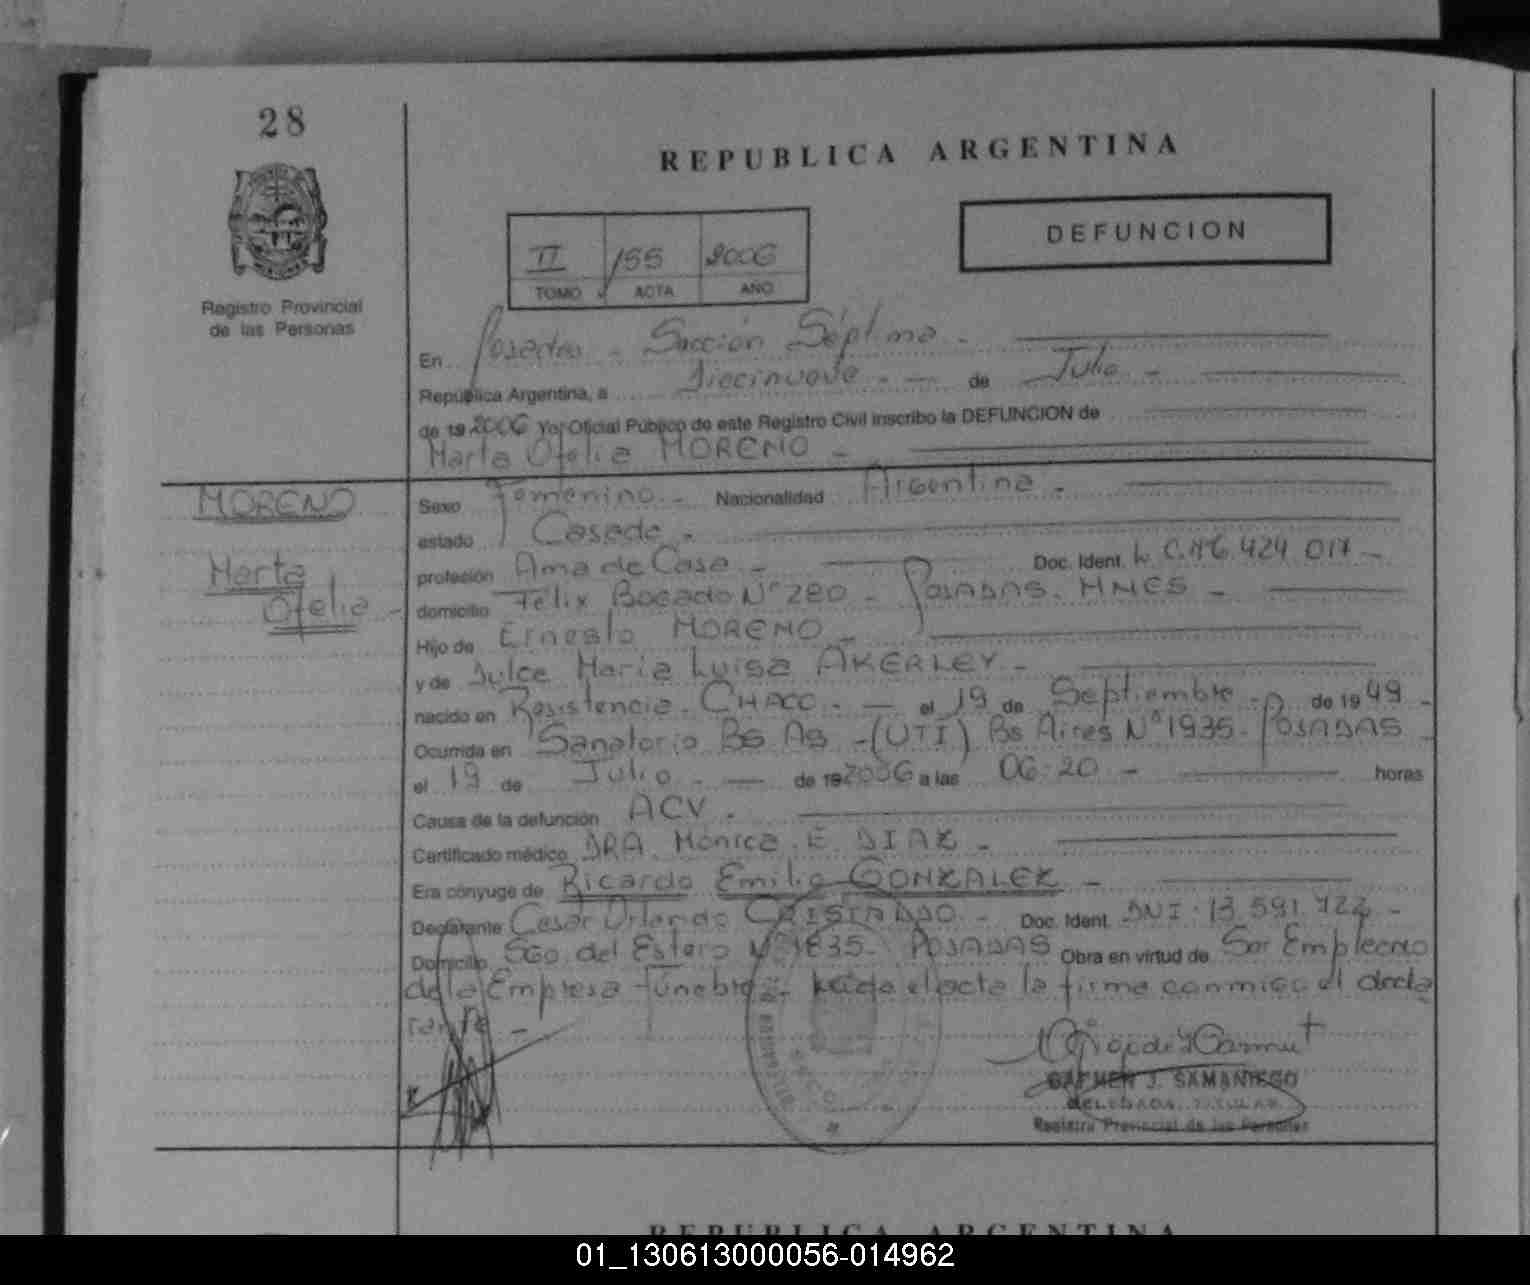 28
REPUBLICA ARGENTINA
Registro Provincial
de las Personas
DEFUNCION
II 155 2006
TOMO ACTA AÑO
En Posadas - Sección Séptima -
República Argentina, a Diecinueve - de Julio -
de 19 2006 Yo, Oficial Público de este Registro Civil inscribo la DEFUNCION de
Marta Ofelia MORENO -
MORENO
Marta
Ofelia -
Sexo Femenino - Nacionalidad Argentina -
estado Casada -
profesión Ama de Casa - Doc. Ident. L.C. Nº6.424.017 -
domicilio Félix Bogado Nº 280 - POSADAS - MNES -
Hijo de Ernesto MORENO -
y de Dulce María Luisa AKERLEY -
nacido en Resistencia - CHACO - el 19 de Septiembre - de 1949 -
Ocurrida en Sanatorio Bs As - (UTI) Bs Aires Nº 1935 - POSADAS -
el 19 de Julio - de 19 2006 a las 06:20 - horas
Causa de la defunción ACV -
Certificado médico DRA. Mónica E. DIAZ -
Era cónyuge de Ricardo Emilio GONZALEZ -
Declarante Cesar Orlando CRISTALDO - Doc. Ident. DNI. 13.591.723 -
Domicilio Sgo. del Estero Nº 1835 - POSADAS Obra en virtud de Ser Empleado
de la Empresa Fúnebre - Leída el acta la firma conmigo el decla
rante -
CARMEN J. SAMANIEGO
DELEGADA TITULAR
Registro Provincial de las Personas
REPUBLICA ARGENTINA
01_130613000056-014962